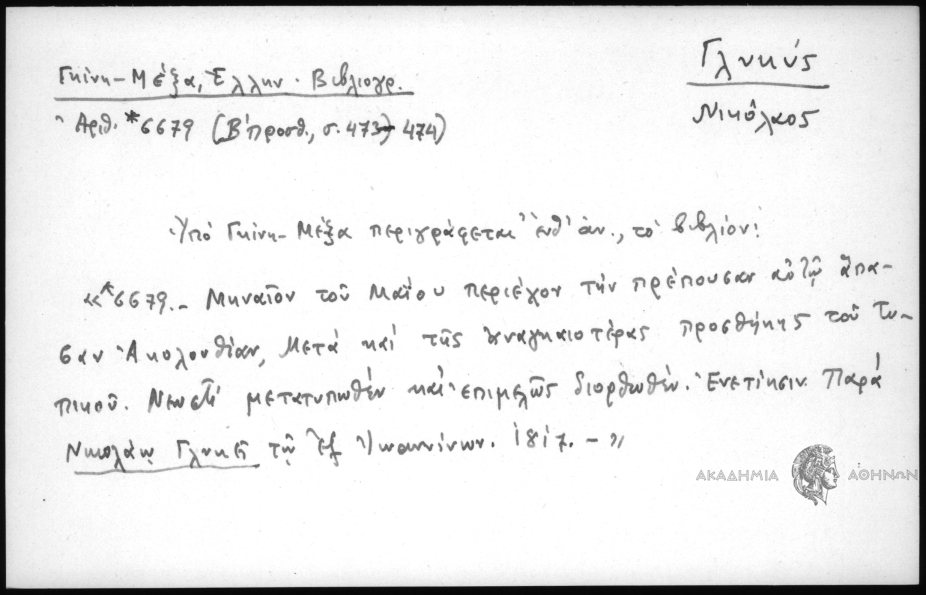 Γκίνη-Μέξα, Ἑλλην. Βιβλιογρ.
Γλυκύς
Ἀριθ. *6679 (Β΄ προσθ., σ. 473-474)
Νικόλαος
Ὑπό Γκίνη-Μέξα περιγράφεται ἐνθ' ἀν., τό βιβλίον:
«*6679.- Μηναῖον τοῦ Μαΐου περιέχον τήν πρέπουσαν αὐτῷ ἅπα-
σαν Ἀκολουθίαν, Μετά καί τῆς ἀναγκαιοτέρας προσθήκης τοῦ Τυ-
πικοῦ. Νεωστί μετατυπωθέν καί ἐπιμελῶς διορθωθέν. Ἐνετίησιν. Παρά
Νικολάῳ Γλυκεῖ τῷ ἐξ Ἰωαννίνων. 1817.-»
ΑΚΑΔΗΜΙΑ ΑΘΗΝΩΝ